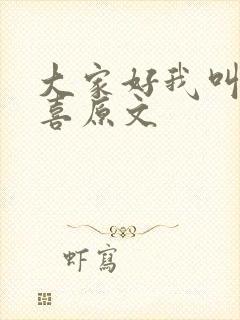 大家好我叫
喜原文
虾写